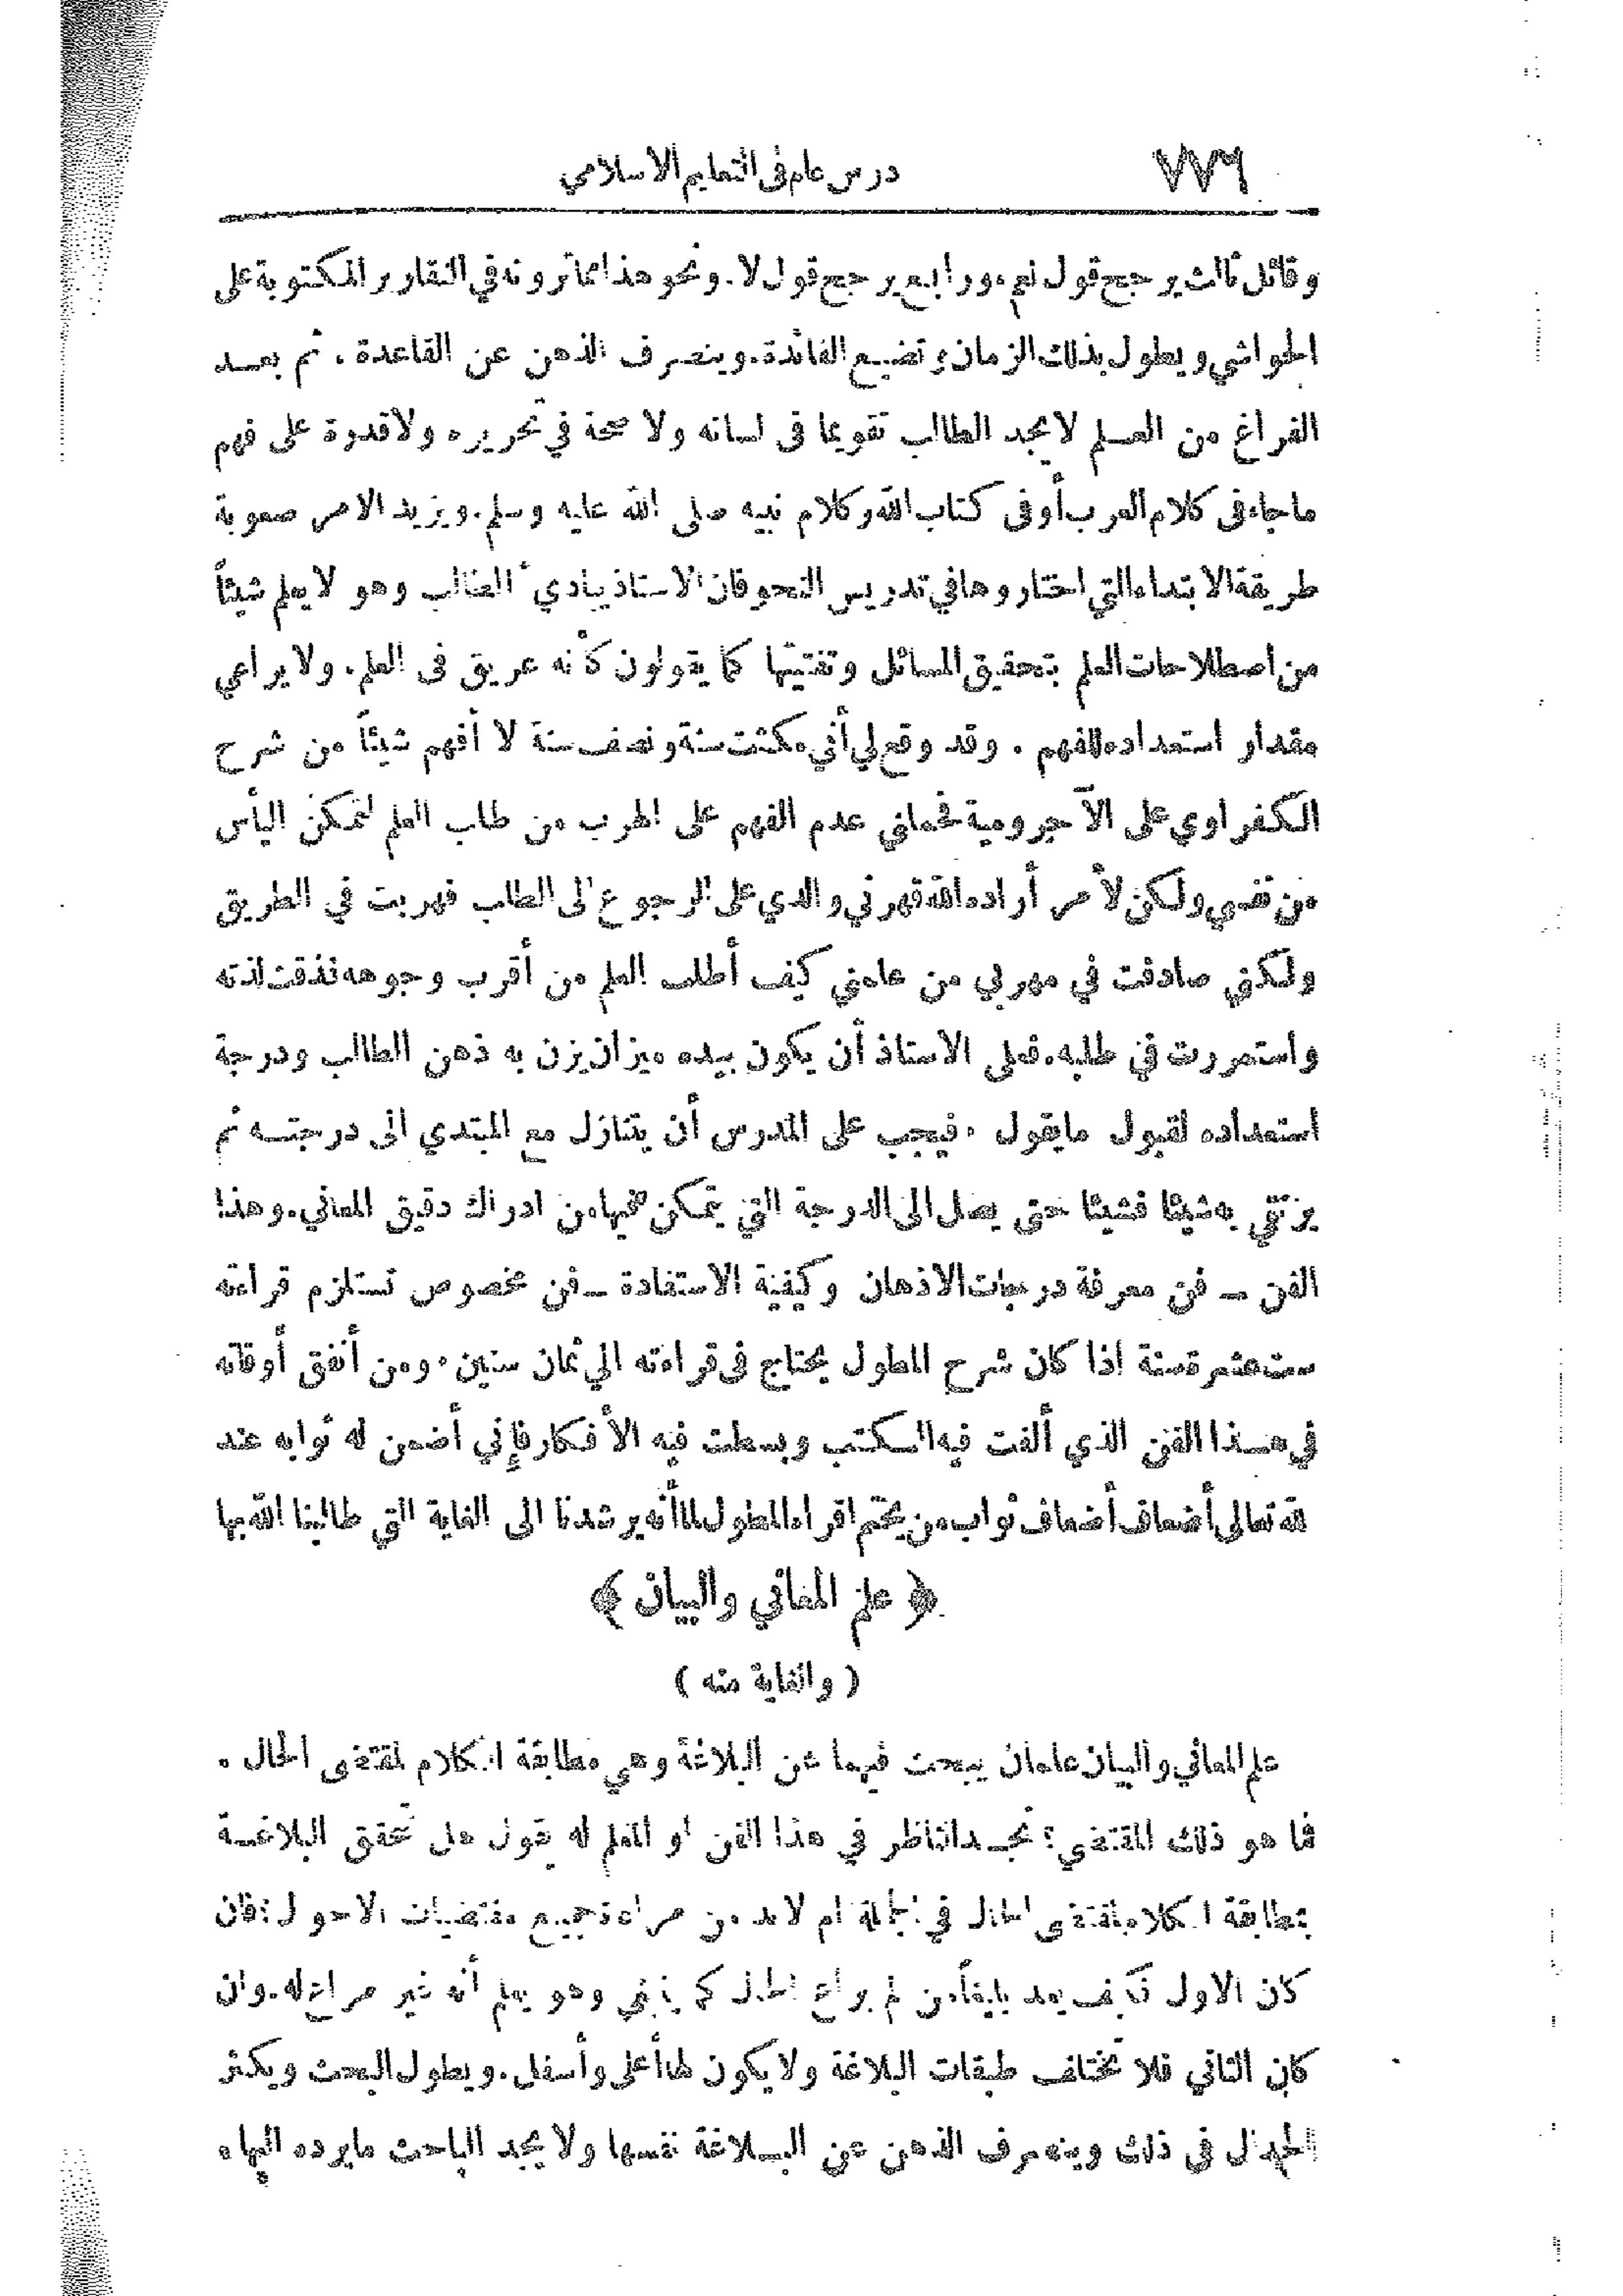 ٧٧٦ درس عام فى التعليم الاسلامي
وقائل ثالث يرجح قول نعم، ورابع يرجح قول لا. ونحو هذا مما ترونه في التقارير المكتوبة على
الحواشي ويطول بذلك الزمان وتضيع الفائدة. وينصرف الذهن عن القاعدة . ثم بعد
الفراغ من العلم لا يجد الطالب تقويما فى لسانه ولا صحة في تحريره ولا قدوة على فهم
ما جاء فى كلام العرب أو فى كتاب الله وكلام نبيه صلى الله عليه وسلم. ويزيد الامر صعوبة
طريقة الابتداء التي اختاروها في تدريس النحو فان الاستاذ يبادي ء الطالب وهو لا يعلم شيئاً
من اصطلاحات العلم بتحقيق المسائل وتفتيتها كما يقولون كأنه عريق فى العلم . ولا يراعي
مقدار استعداده للفهم . وقد وقع لي أني مكثت سنة ونصف سنة لا أفهم شيئاً من شرح
الكفراوي على الآجرومية فحملني عدم الفهم على الهرب من طلب العلم لتمكن اليأس
من نفسي ولكن لأمر أراده الله قهرني والدي على الرجوع الى الطلب فهربت في الطريق
ولكني صادفت في مهربي من علمني كيف أطلب العلم من أقرب وجوهه فذقت لذته
واستمررت في طلبه. فعلى الاستاذ أن يكون بيده ميزان يزن به ذهن الطالب ودرجة
استعداده لقبول مايقول . فيجب على المدرس أن يتنازل مع المبتدي الى درجته ثم
يرتقي به شيئا فشيئا حتى يصل الى الدرجة التي يتمكن فيها من ادراك دقيق المعاني. وهذا
الفن ــ فن معرفة درجات الاذهان وكيفية الاستفادة ــ فن مخصوص تستلزم قراءته
ست عشرة سنة اذا كان شرح المطول يحتاج فى قراءته الي ثمان سنين. ومن أنفق أوقاته
في هذا الفن الذي ألفت فيه الكتب وبسطت فيه الأفكار فإني أضمن له ثوابه عند
لله تعالى أضعاف أضعاف ثواب من يختم اقراء المطول لما أنه يرشدنا الى الغاية التي طالبنا الله بها
﴿ علم المعاني والبيان ﴾
( والغاية منه )
علم المعاني والبيان علمان يبحث فيهما عن البلاغة وهي مطابقة الكلام لمقتضى الحال .
فما هو ذلك المقتضي؟ نجد الناظر في هذا الفن او المعلم له يقول هل تحقق البلاغة
بمطابقة الكلام لمقتضى الحال في الجملة ام لابد من مراعاة جميع مقتضيات الاحوال؟ فان
كان الاول فكيف يعد بليغاً من لم يراع الحال كما ينبغي وهو يعلم أنه غير مراع له. وان
كان الثاني فلا تختلف طبقات البلاغة ولا يكون لها أعلى وأسفل . ويطول البحث ويكثر
الجدال فى ذلك وينصرف الذهن عن البلاغة نفسها ولا يجد الباحث مايرده اليها.